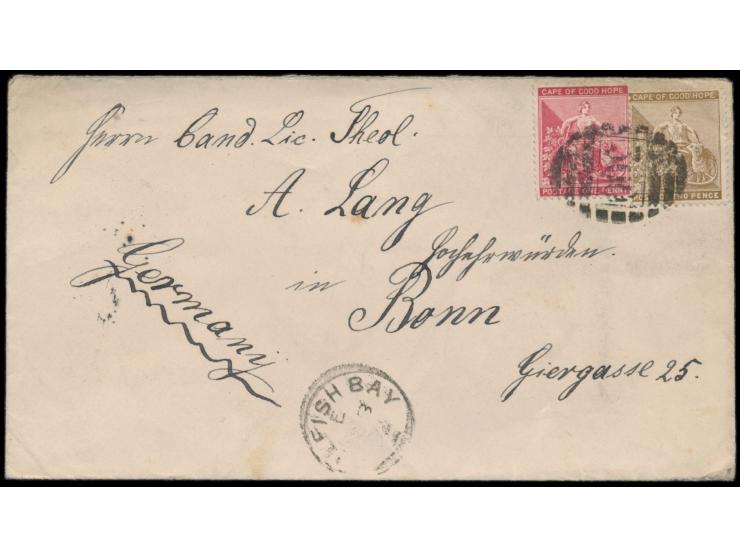 CAPE OF GOOD HOPE
POSTAGE ONE PENNY
CAPE OF GOOD HOPE
TWO PENCE
Herrn Cand. Lic. Theol.
A. Lang
Hochehrwürden.
in
Bonn
Giergasse 25.
Germany
LFISH BAY